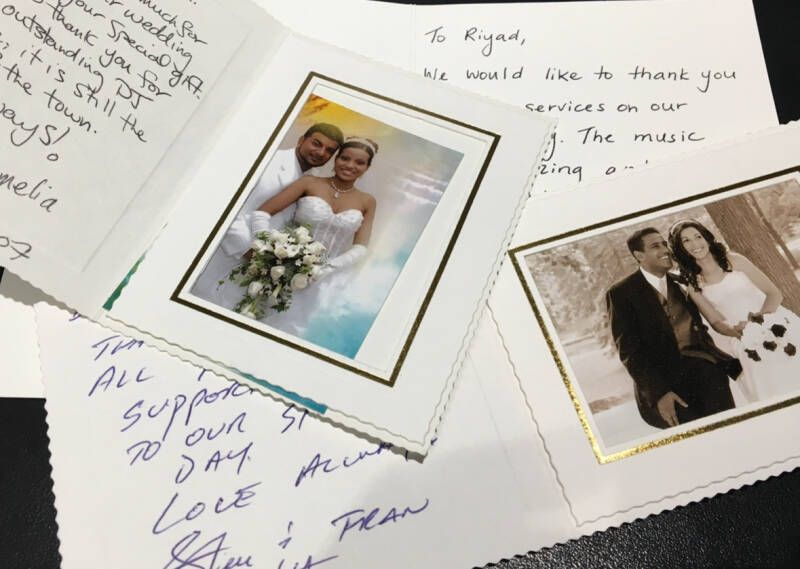 much for
r wedding
our special gift.
thank you for
outstanding DJ
it is still the
the town.
ays!
melia
07
To Riyad,
We would like to thank you
services on our
y. The music
zing and
ALL
SUPPOR
TO OUR SP
DAY.
LOVE ALWAY
& FRAN